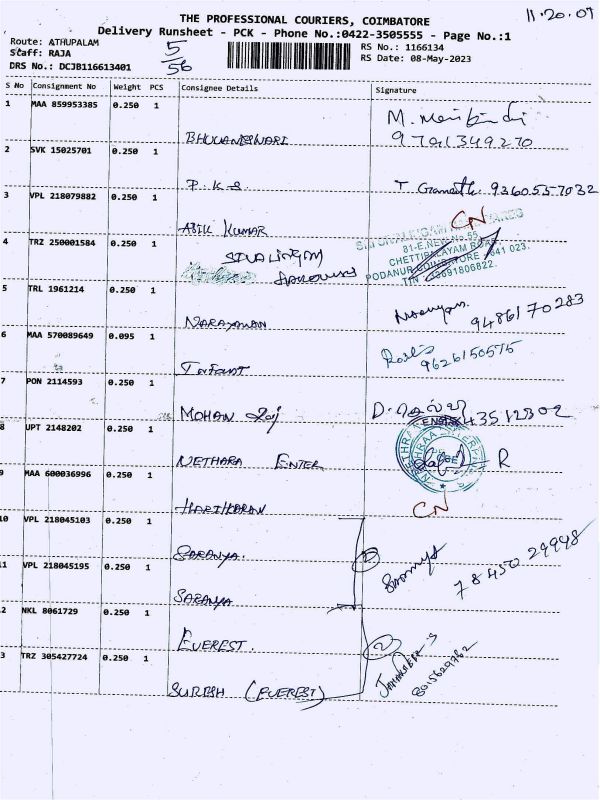 11.20.07
THE PROFESSIONAL COURIERS, COIMBATORE
Delivery Runsheet - PCK - Phone No.:0422-3505555 - Page No.:1
Route: ATHUPALAM
Staff: RAJA
DRS No.: DCJB116613401
5/56
RS No.: 1166134
RS Date: 08-May-2023
S No Consignment No Weight PCS Consignee Details Signature
1 MAA 859953385 0.250 1 BHUVANESWARI
2 SVK 15025701 0.250 1 P.K.S 9360557032
3 VPL 218079882 0.250 1 AJIL KUMAR CN
4 TRZ 250001584 0.250 1 SIVALINGAM
81-E, NEW No.55,
CHETTIPALAYAM ROAD
PODANUR, COIMBATORE - 641 023.
5 TRL 1961214 0.250 1 NARAYANAN 9486170283
6 MAA 570089649 0.095 1 9626150575
7 PON 2114593 0.250 1 MOHAN Raj
8 UPT 2148202 0.250 1 NETHARA ENTER R
9 MAA 600036996 0.250 1 HARIHARAN CN
10 VPL 218045103 0.250 1 SARANYA.
11 VPL 218045195 0.250 1 SARANYA 2
12 NKL 8061729 0.250 1 EVEREST. 2
13 TRZ 305427724 0.250 1 SURESH (EVEREST)